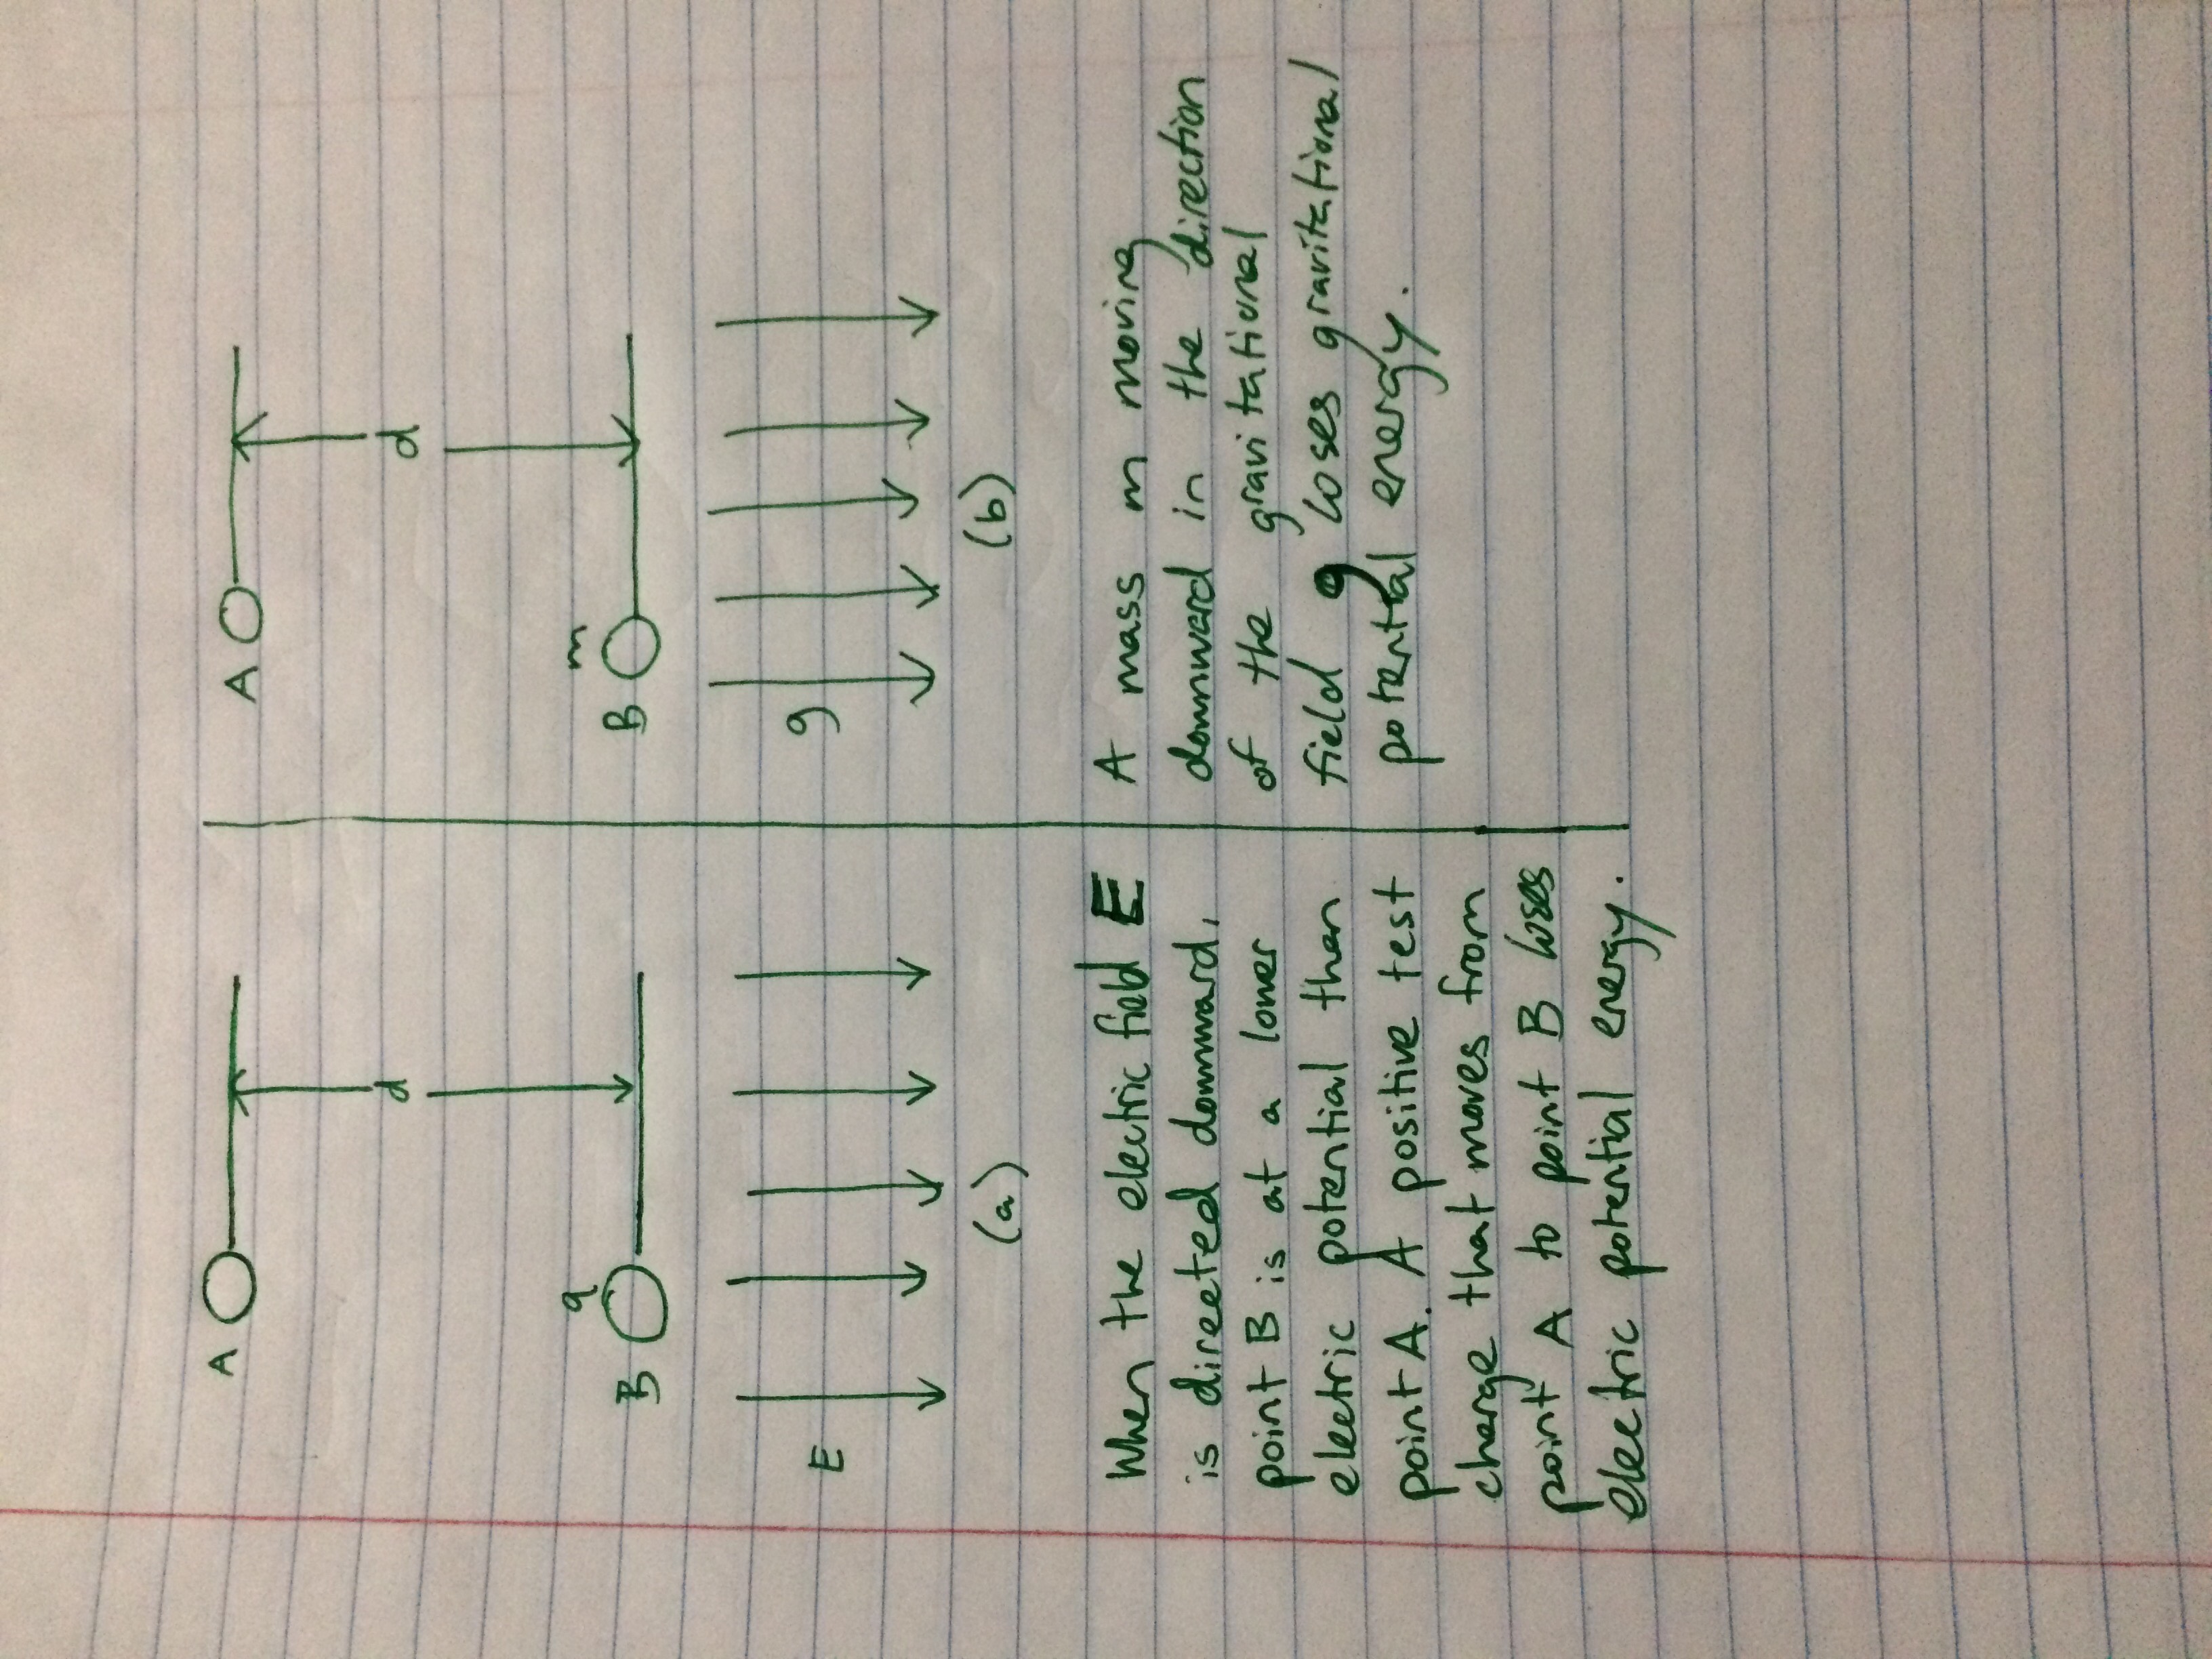 A
d
q
B
E
(a)
When the electric field E
is directed downward,
point B is at a lower
electric potential than
point A. A positive test
charge that moves from
point A to point B loses
electric potential energy.
A
d
m
B
g
(b)
A mass m moving
downward in the direction
of the gravitational
field g loses gravitational
potential energy.